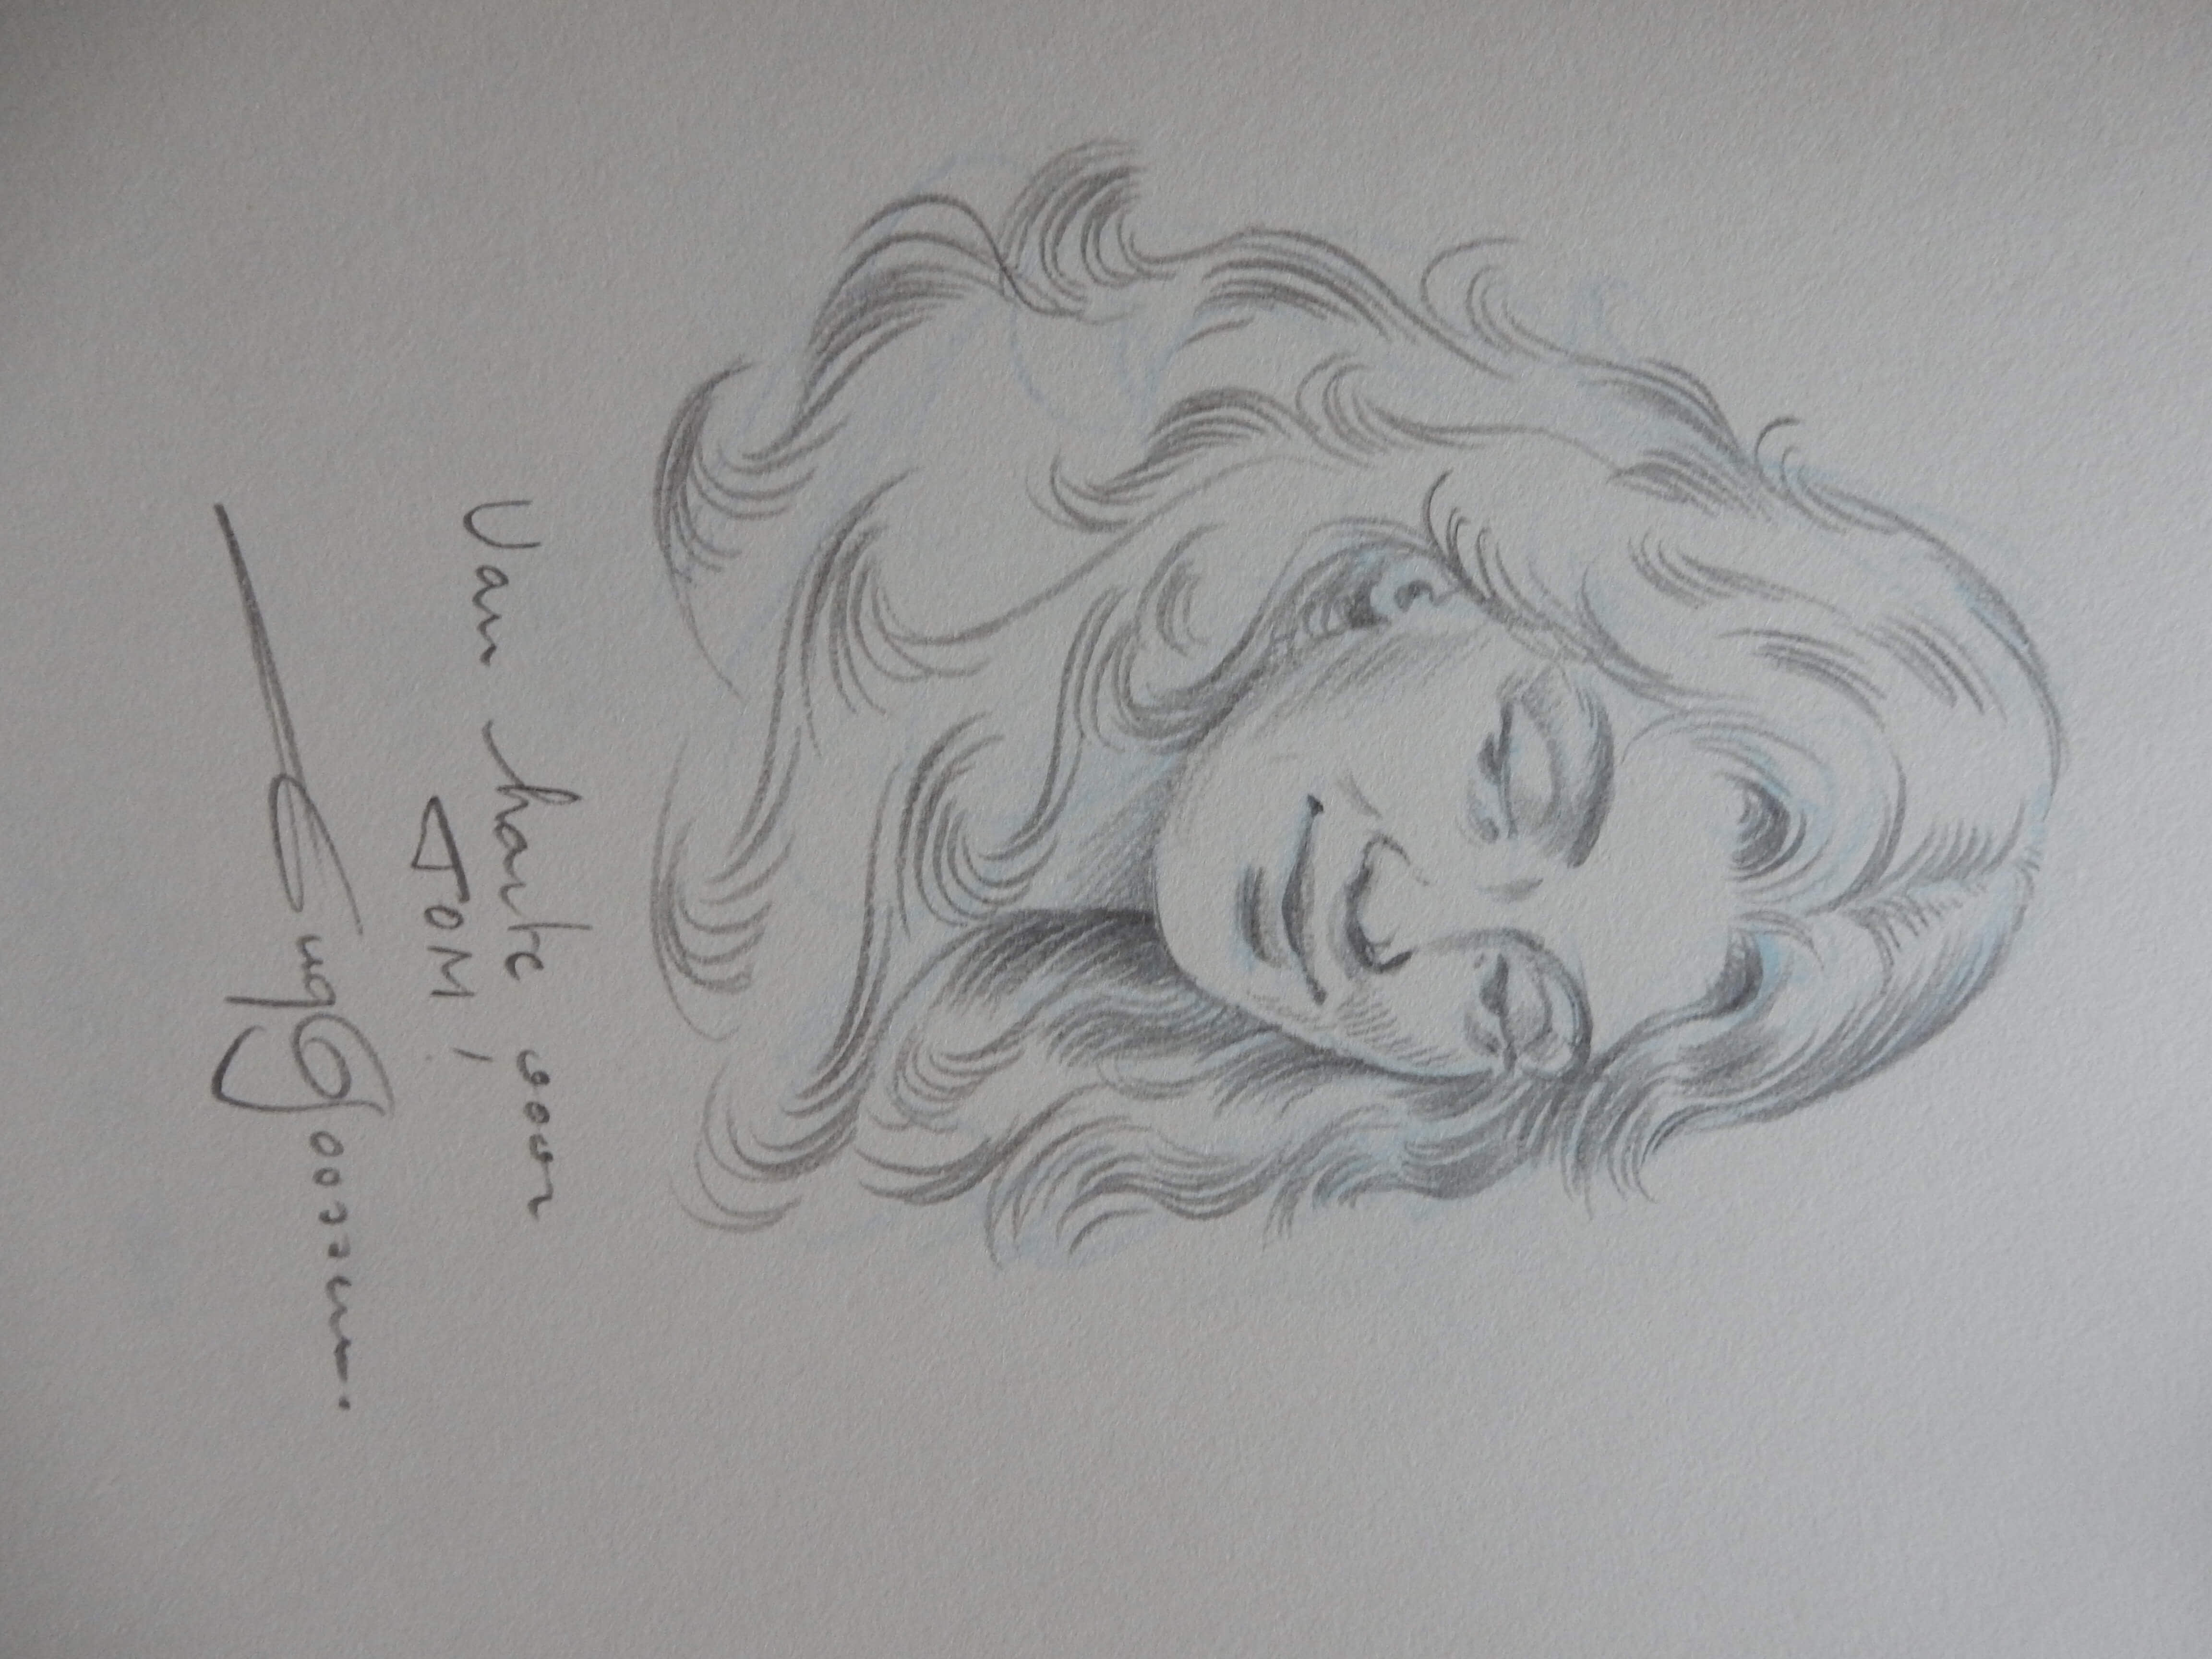 Van harte voor
TOM!
Eug Goossens.